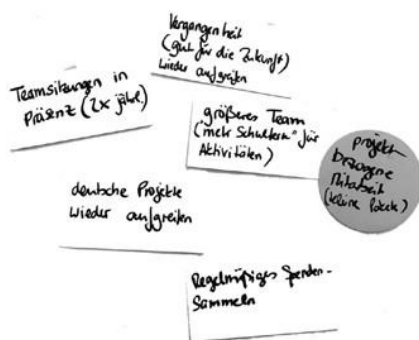 Vergangenheit
(gut für die Zukunft)
wieder aufgreifen
Teamsitzungen in
Präsenz (2x jährl.)
größeres Team
(mehr Schultern" für
Aktivitäten)
projekt-
bezogene
Mitarbeit
(kleine Pakete)
deutsche Projekte
wieder aufgreifen
Regelmäßiges Spenden-
Sammeln